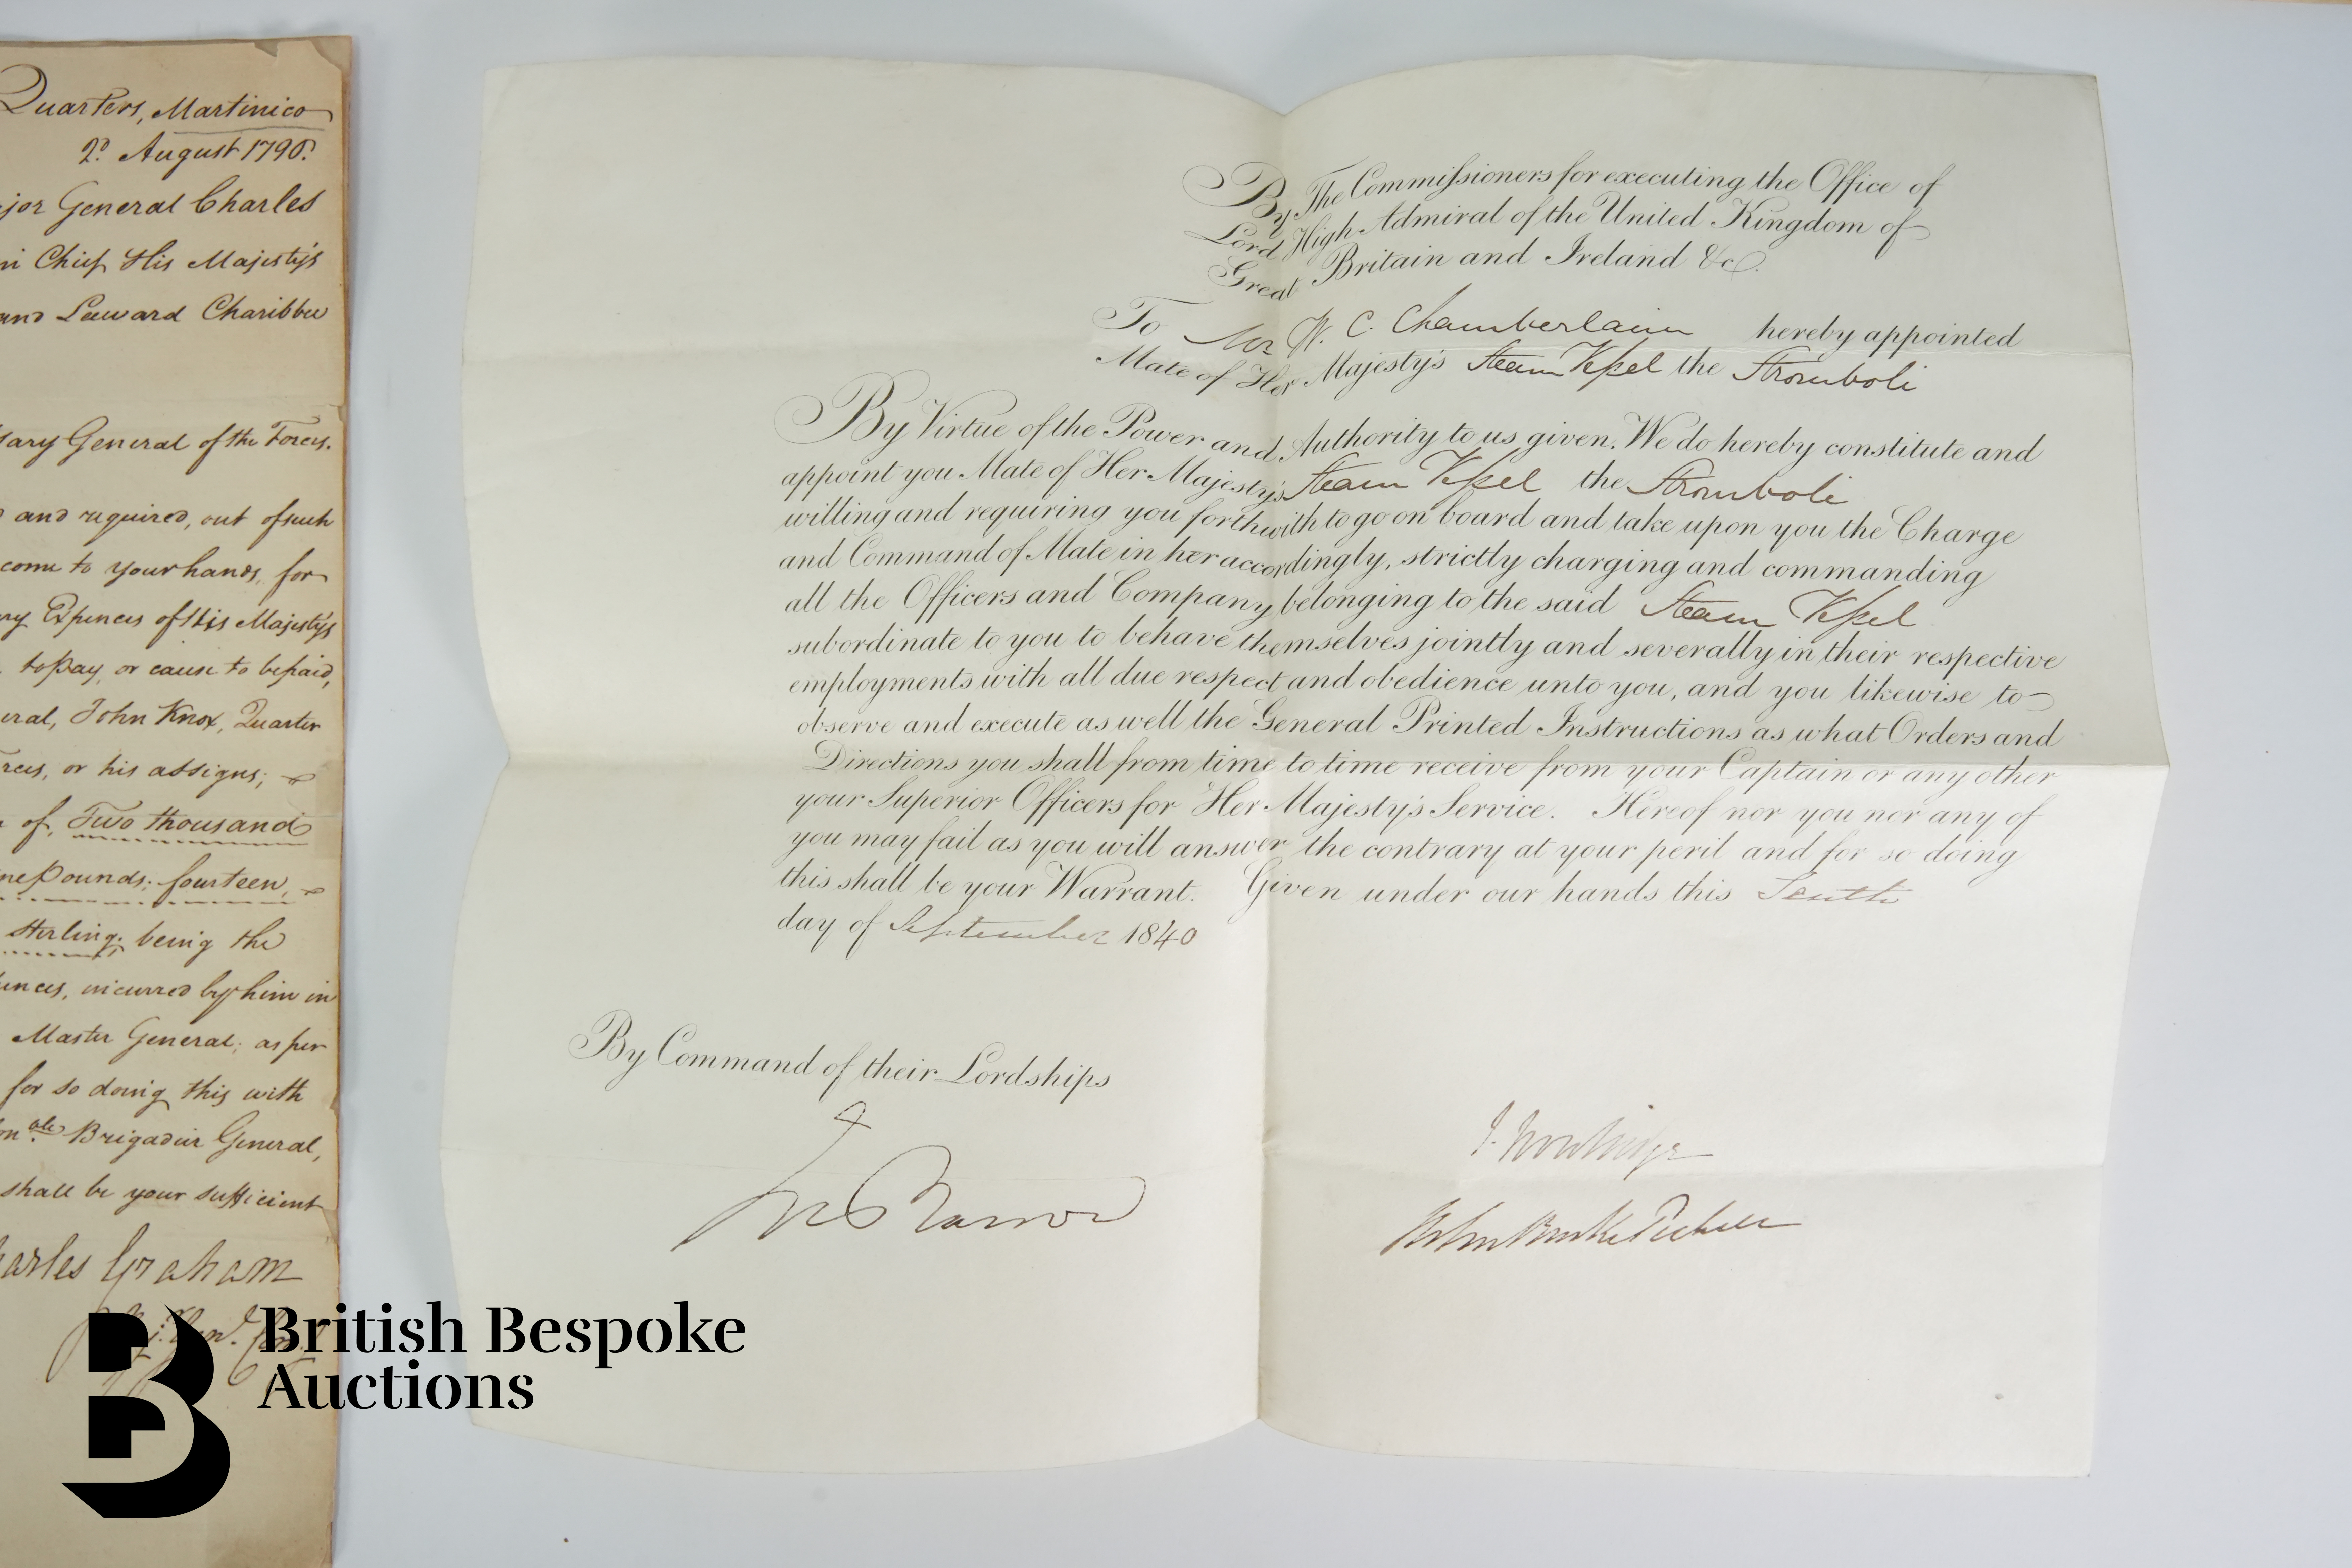 Quarters, Martinico
2d August 1796.
jor General Charles
in Chief His Majesty's
and Leeward Charibbee
sary General of the Forces.
and required, out of such
come to your hands, for
ry Expences of His Majesty's
to pay, or cause to be paid,
eral, John Knox, Quarter
rces, or his assigns;
of, Two thousand
ne pounds: fourteen,
sterling; being the
ences, incurred by him in
Master General; as per
for so doing this with
onable Brigadier General,
shall be your sufficient
harles Graham
By The Commissioners for executing the Office of
Lord High Admiral of the United Kingdom of
Great Britain and Ireland &c.
To Mr W. C. Chamberlain hereby appointed
Mate of Her Majesty's Steam Vessel the Stromboli
By Virtue of the Power and Authority to us given. We do hereby constitute and
appoint you Mate of Her Majesty's Steam Vessel the Stromboli
willing and requiring you forthwith to go on board and take upon you the Charge
and Command of Mate in her accordingly, strictly charging and commanding
all the Officers and Company belonging to the said Steam Vessel
subordinate to you to behave themselves jointly and severally in their respective
employments with all due respect and obedience unto you, and you likewise to
observe and execute as well the General Printed Instructions as what Orders and
Directions you shall from time to time receive from your Captain or any other
your Superior Officers for Her Majesty's Service. Hereof nor you nor any of
you may fail as you will answer the contrary at your peril and for so doing
this shall be your Warrant. Given under our hands this Tenth
day of September 1840
By Command of their Lordships
Barrow
British Bespoke
Auctions